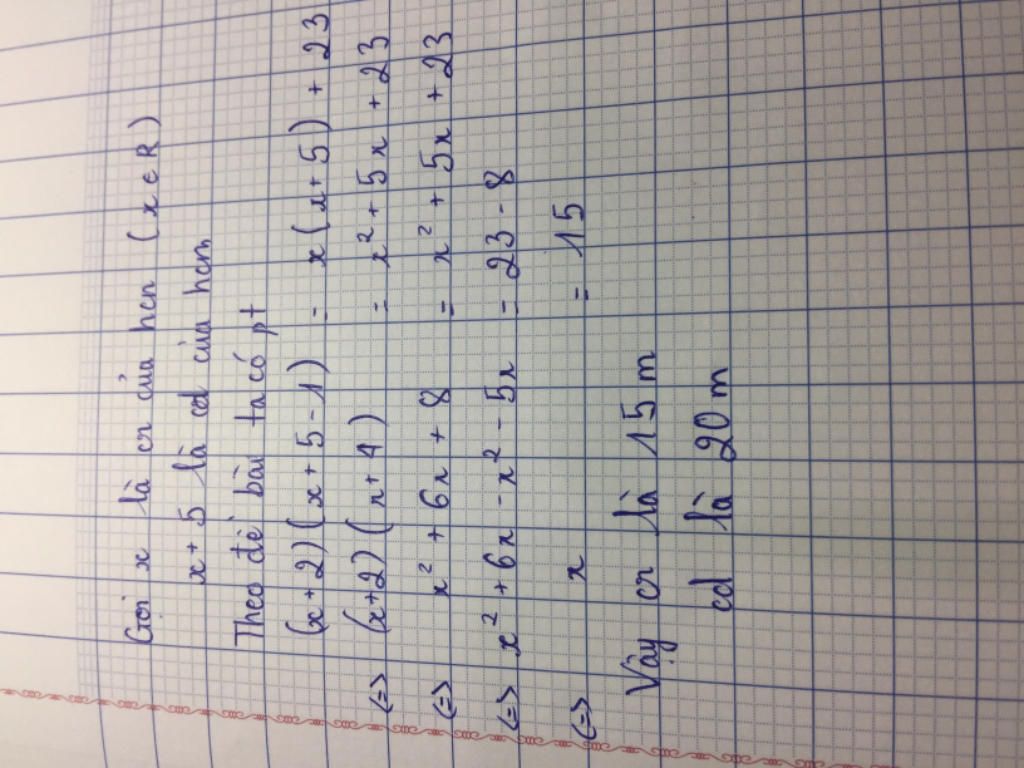 Gọi x là cr của hcn (x ∈ R)
x + 5 là cd của hcn
Theo đề bài ta có pt
(x + 2)(x + 5 - 1) = x(x + 5) + 23
<=> (x+2)(x+4) = x² + 5x + 23
<=> x² + 6x + 8 = x² + 5x + 23
<=> x² + 6x - x² - 5x = 23 - 8
<=> x = 15
Vậy cr là 15 m
cd là 20 m